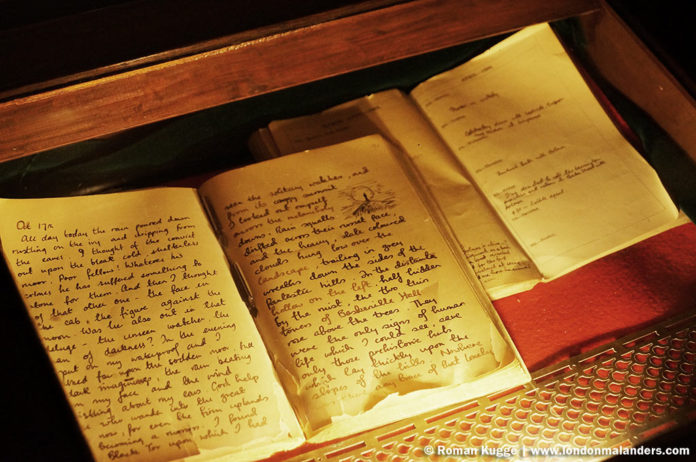 Oct 17th
All day today the rain poured down
rustling on the ivy and dripping from
the eaves. I thought of the convict
out upon the bleak cold shelterless
moor. Poor fellow! Whatever his
crimes, he has suffered something to
atone for them. And then I thought
of that other one - the face in
the cab, the figure against the
moon. Was he also out in that
deluge - the unseen watcher, the
man of darkness? In the evening
put on my waterproof and I
walked far upon the sodden moor, full
dark imaginings, the rain beating
my face and the wind
whistling about my ears. God help
who wander into the great
now, for even the firm uplands
becoming a morass. I found
Black Tor upon which I had
seen the solitary watcher, and
from its craggy summit
I looked out myself
across the melancholy
downs. Rain squalls
drifted across their russet face,
and the heavy slate coloured
clouds hung low over the
landscape, trailing in grey
wreaths down the sides of the
fantastic hills. In the distant
hollow on the left, half hidden
by the mist, the two thin
towers of Baskerville Hall
rose above the trees. They
were the only signs of human
life which I could see, save
only those prehistoric huts
which lay thickly upon the
slopes of the hills. Nowhere
any trace of that lonely
© Roman Kugge | www.londonmalanders.com